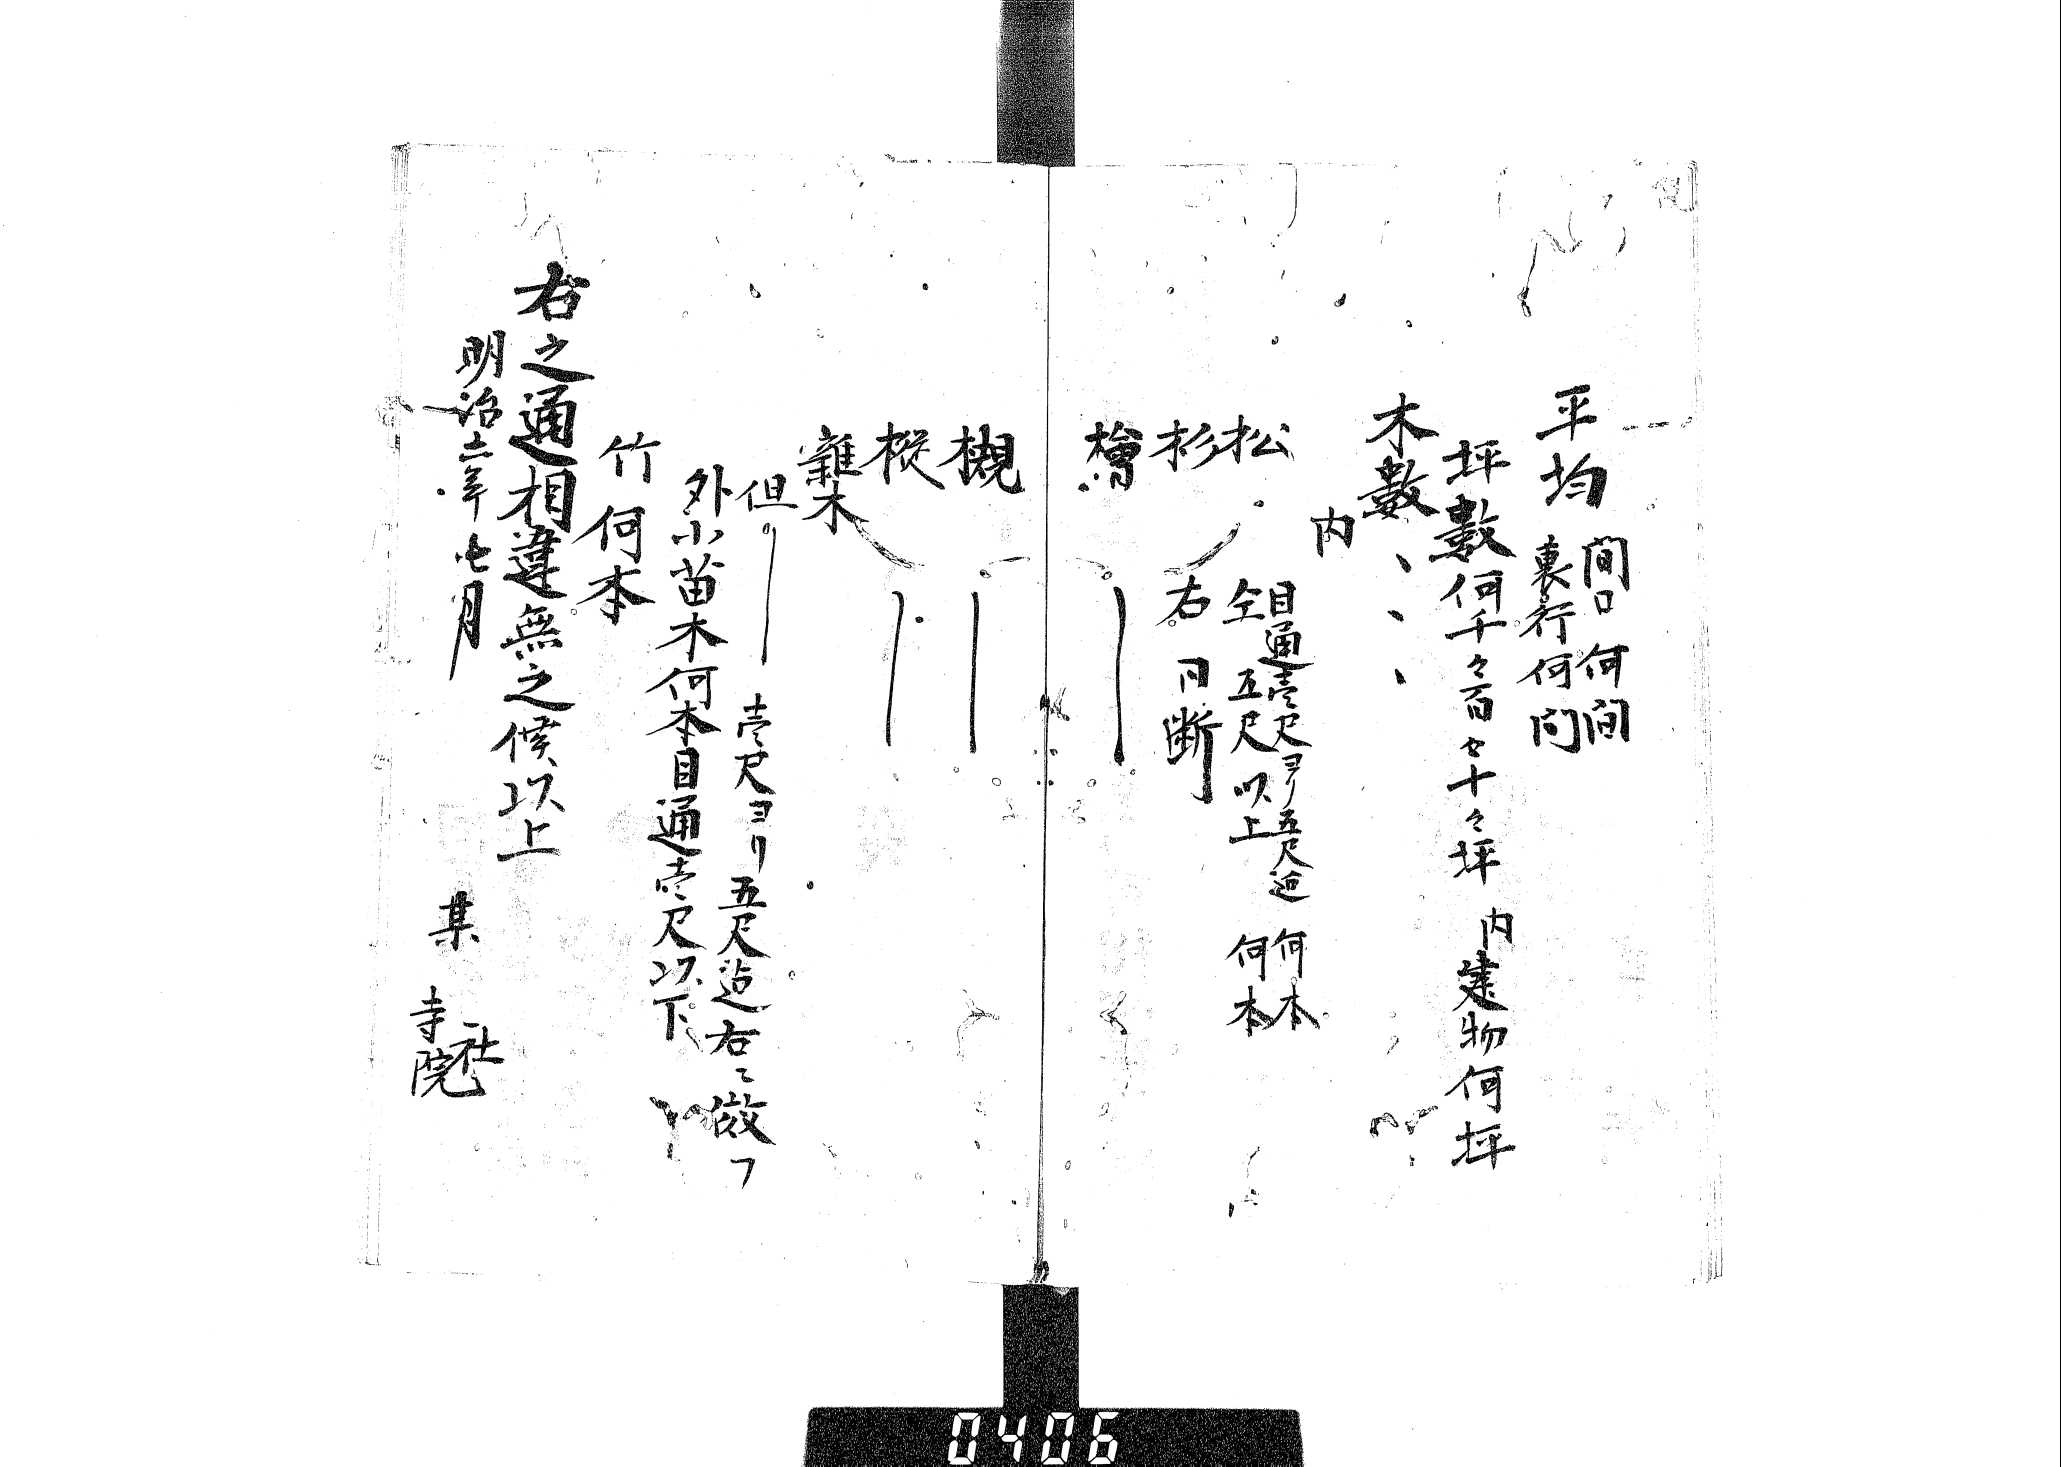 平均 間口何間
裏行何間
坪數何千々百々十々坪 内建物何坪
木數、、、
内
松 目通壱尺ヨリ五尺迠 何本
仝 五尺以上 何本
杉 右同断
檜 ｜
槻 ｜
樅 ｜
雜木
但シ 壱尺ヨリ五尺迠右ニ倣フ
外小苗木何本目通壱尺以下
竹何本
右之通相違無之候以上
明治六年七月 某 社
寺院
0406